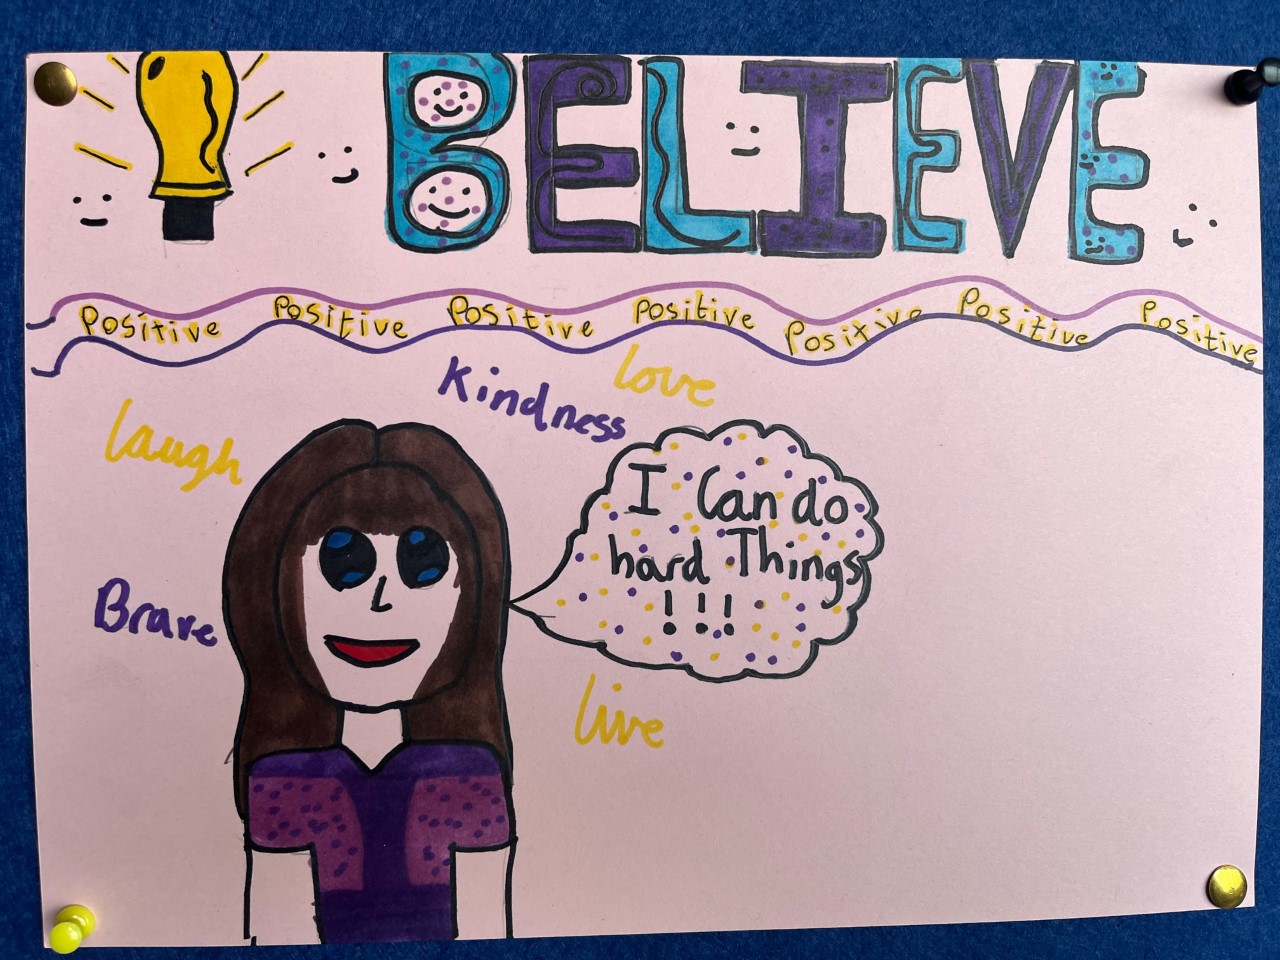 BELIEVE
Positive Positive Positive Positive Positive Positive Positive
Kindness
love
laugh
I Can do
hard Things
!!!
Brave
live